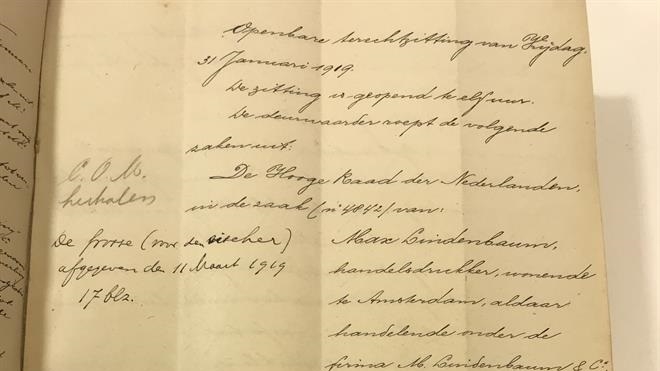 Openbare terechtzitting van Vrijdag,
31 Januari 1919.
De zitting is geopend te elf uur.
De deurwaarder roept de volgende
zaken uit:
De Hooge Raad der Nederlanden,
in de zaak (no 4842) van:
Max Lindenbaum,
handelsdrukker, wonende
te Amsterdam, aldaar
handelende onder de
firma M. Lindenbaum & Co.
C. O. M.
herhalen
De Grosse (voor den eischer)
afgegeven den 11 Maart 1919
17 blz.